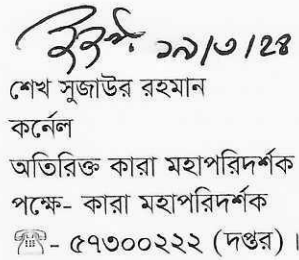 ১৯/৩/২৪
শেখ সুজাউর রহমান
কর্নেল
অতিরিক্ত কারা মহাপরিদর্শক
পক্ষে- কারা মহাপরিদর্শক
☎- ৫৭৩০০২২২ (দপ্তর)।